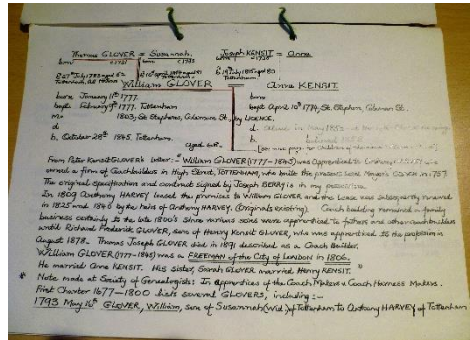 Thomas GLOVER = Susannah. Joseph KENSIT = Anne
born c1731 born c1733 born c1735
WILLIAM GLOVER = Anne KENSIT.
born January 11th 1777. born
bapt February 9th 1777. Tottenham bapt April 10th 1774, St. Stephens, Coleman St.
m= 1803, St. Stephens, Coleman St., by LICENCE.
d d.
b. October 28th 1845, Tottenham. b.
Aged 68.
From Peter Kensit GLOVER's letter:- William GLOVER (1777-1845) was Apprenticed to Anthony HARVEY who
owned a firm of Coachbuilders in High Street, TOTTENHAM, who built the present Lord Mayor's Coach in 1757
The original specification and contract signed by Joseph BERRY is in my possession.
In 1809 Anthony HARVEY leased the premises to William GLOVER and the Lease was subsequently renewed
in 1825 and 1846 by the heirs of Anthony HARVEY. (Originals existing) Coach building remained a family
business certainly to the late 1800's since various sons were apprenticed to fathers and other coach builders
until Richard Frederick GLOVER, son of Henry Kensit GLOVER, who was apprenticed to the profession in
August 1878. Thomas Joseph GLOVER died in 1891 described as a Coach Builder.
WILLIAM GLOVER (1777-1845) was a FREEMAN of the City of LONDON in 1806.
He married Anne KENSIT. His sister, Sarah GLOVER married Henry KENSIT.
* Note made at Society of Genealogists: In Apprentices of the Coach Makers & Coach Harness Makers.
First Charter 1677-1800 lists several GLOVERS, including:-
1793 May 16th GLOVER, William, son of Susannah (Wid.) of Tottenham to Anthony HARVEY of Tottenham